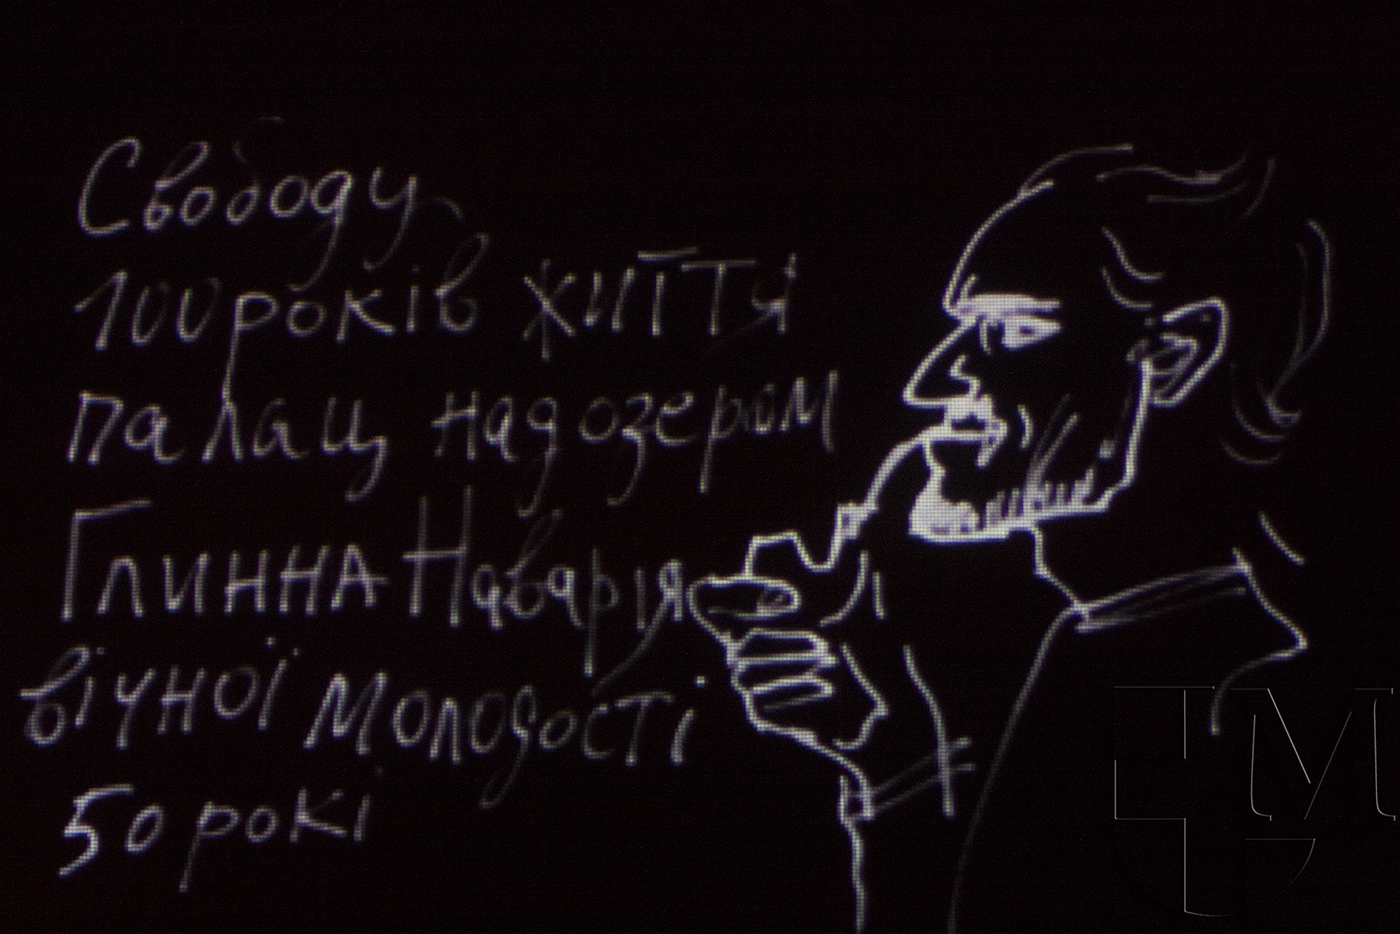 Свободу,
100 років життя
палац над озером
Глинна Наварія
вічної молодості
50 рокі